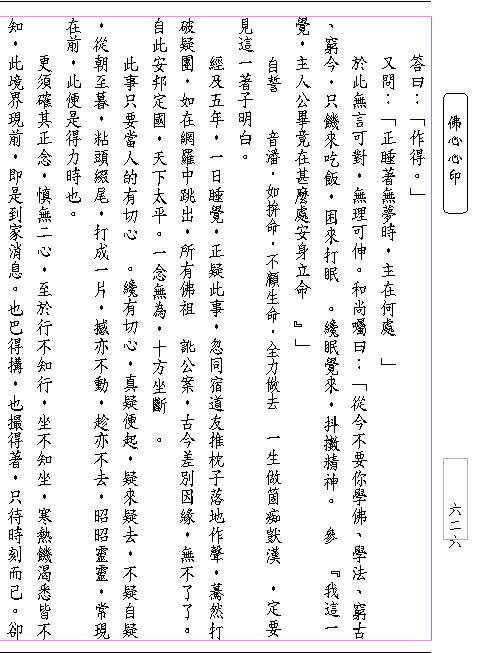 佛心心印
六二六
答曰：「作得。」
又問：「正睡著無夢時，主在何處　」
於此無言可對，無理可伸。和尚囑曰：「從今不要你學佛、學法、窮古
、窮今，只饑來吃飯，困來打眠　。纔眠覺來，抖擻精神。　參　『我這一
覺，主人公畢竟在甚麼處安身立命　』」
自誓　　音潘，如拚命，不顧生命，全力做去　一生做箇痴獃漢　，定要
見這一著子明白。
經及五年，一日睡覺，正疑此事，忽同宿道友推枕子落地作聲，驀然打
破疑團，如在網羅中跳出，所有佛祖　訛公案，古今差別因緣，無不了了。
自此安邦定國，天下太平。一念無為，十方坐斷　。
此事只要當人的有切心　。纔有切心，真疑便起，疑來疑去，不疑自疑
，從朝至暮，粘頭綴尾，打成一片，撼亦不動，趁亦不去，昭昭靈靈，常現
在前，此便是得力時也。
更須確其正念，慎無二心，至於行不知行，坐不知坐，寒熱饑渴悉皆不
知，此境界現前，即是到家消息。也巴得搆，也撮得著，只待時刻而已。卻